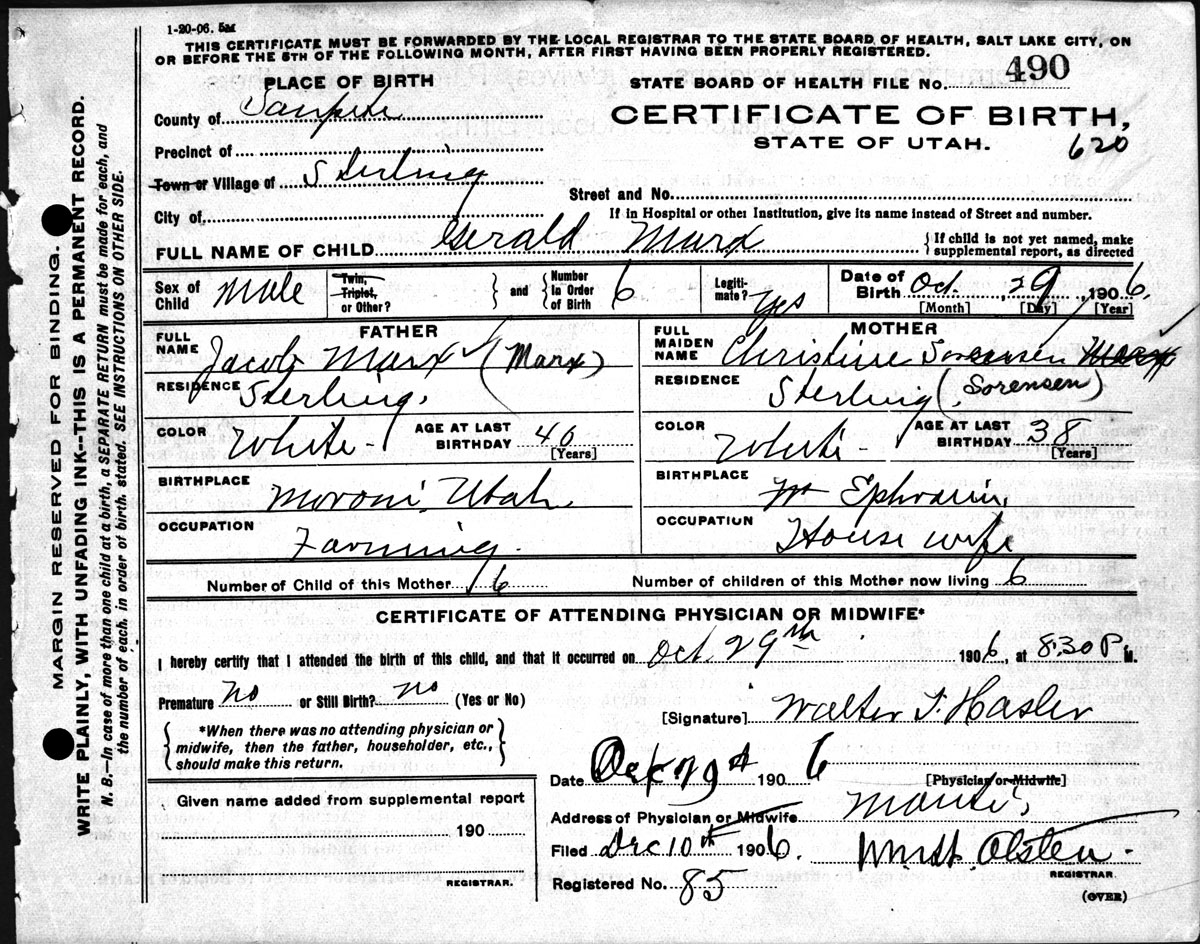 1-20-06. 5M
THIS CERTIFICATE MUST BE FORWARDED BY THE LOCAL REGISTRAR TO THE STATE BOARD OF HEALTH, SALT LAKE CITY, ON
OR BEFORE THE 5TH OF THE FOLLOWING MONTH, AFTER FIRST HAVING BEEN PROPERLY REGISTERED.
PLACE OF BIRTH
STATE BOARD OF HEALTH FILE No. 490
County of Sanpete
CERTIFICATE OF BIRTH,
STATE OF UTAH.
620
Precinct of
Town or Village of Sterling
Street and No.
City of
If in Hospital or other Institution, give its name instead of Street and number.
FULL NAME OF CHILD Gerald Marx
{If child is not yet named, make supplemental report, as directed
Sex of Child Male
Twin, Triplet, or Other? } and { Number in Order of Birth 6
Legiti-mate? Yes
Date of Birth Oct. 29, 1906.
[Month] [Day] [Year]
FATHER
FULL NAME Jacob Marx (Marx)
RESIDENCE Sterling.
COLOR White
AGE AT LAST BIRTHDAY 40
[Years]
BIRTHPLACE Moroni, Utah
OCCUPATION Farming.
MOTHER
FULL MAIDEN NAME Christine Sorensen Marx
RESIDENCE Sterling (Sorensen)
COLOR White
AGE AT LAST BIRTHDAY 38
[Years]
BIRTHPLACE Ephraim,
OCCUPATION House wife
Number of Child of this Mother 6
Number of children of this Mother now living 6
CERTIFICATE OF ATTENDING PHYSICIAN OR MIDWIFE*
I hereby certify that I attended the birth of this child, and that it occurred on Oct. 29th 1906, at 8.30 P M.
Premature no or Still Birth? no (Yes or No)
[Signature] Walter T. Hasler
{*When there was no attending physician or midwife, then the father, householder, etc., should make this return.}
Date Oct 29th 1906
[Physician or Midwife]
Given name added from supplemental report
190
REGISTRAR.
Address of Physician or Midwife Manti,
Filed Dec 10th 1906.
Olsten
REGISTRAR.
Registered No. 85
(OVER)
MARGIN RESERVED FOR BINDING.
WRITE PLAINLY, WITH UNFADING INK--THIS IS A PERMANENT RECORD.
N. B.--In case of more than one child at a birth, a SEPARATE RETURN must be made for each, and
the number of each, in order of birth, stated. SEE INSTRUCTIONS ON OTHER SIDE.